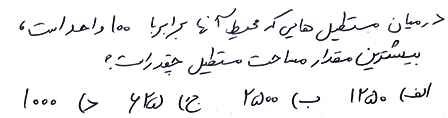 درمیان مستطیل هایی که محیط آنها برابر با ۱۰۰ واحد است،
بیشترین مقدار مساحت مستطیل چقدر است؟
الف) ۱۲۵۰ ب) ۲۵۰۰ ج) ۶۲۵ د) ۱۰۰۰